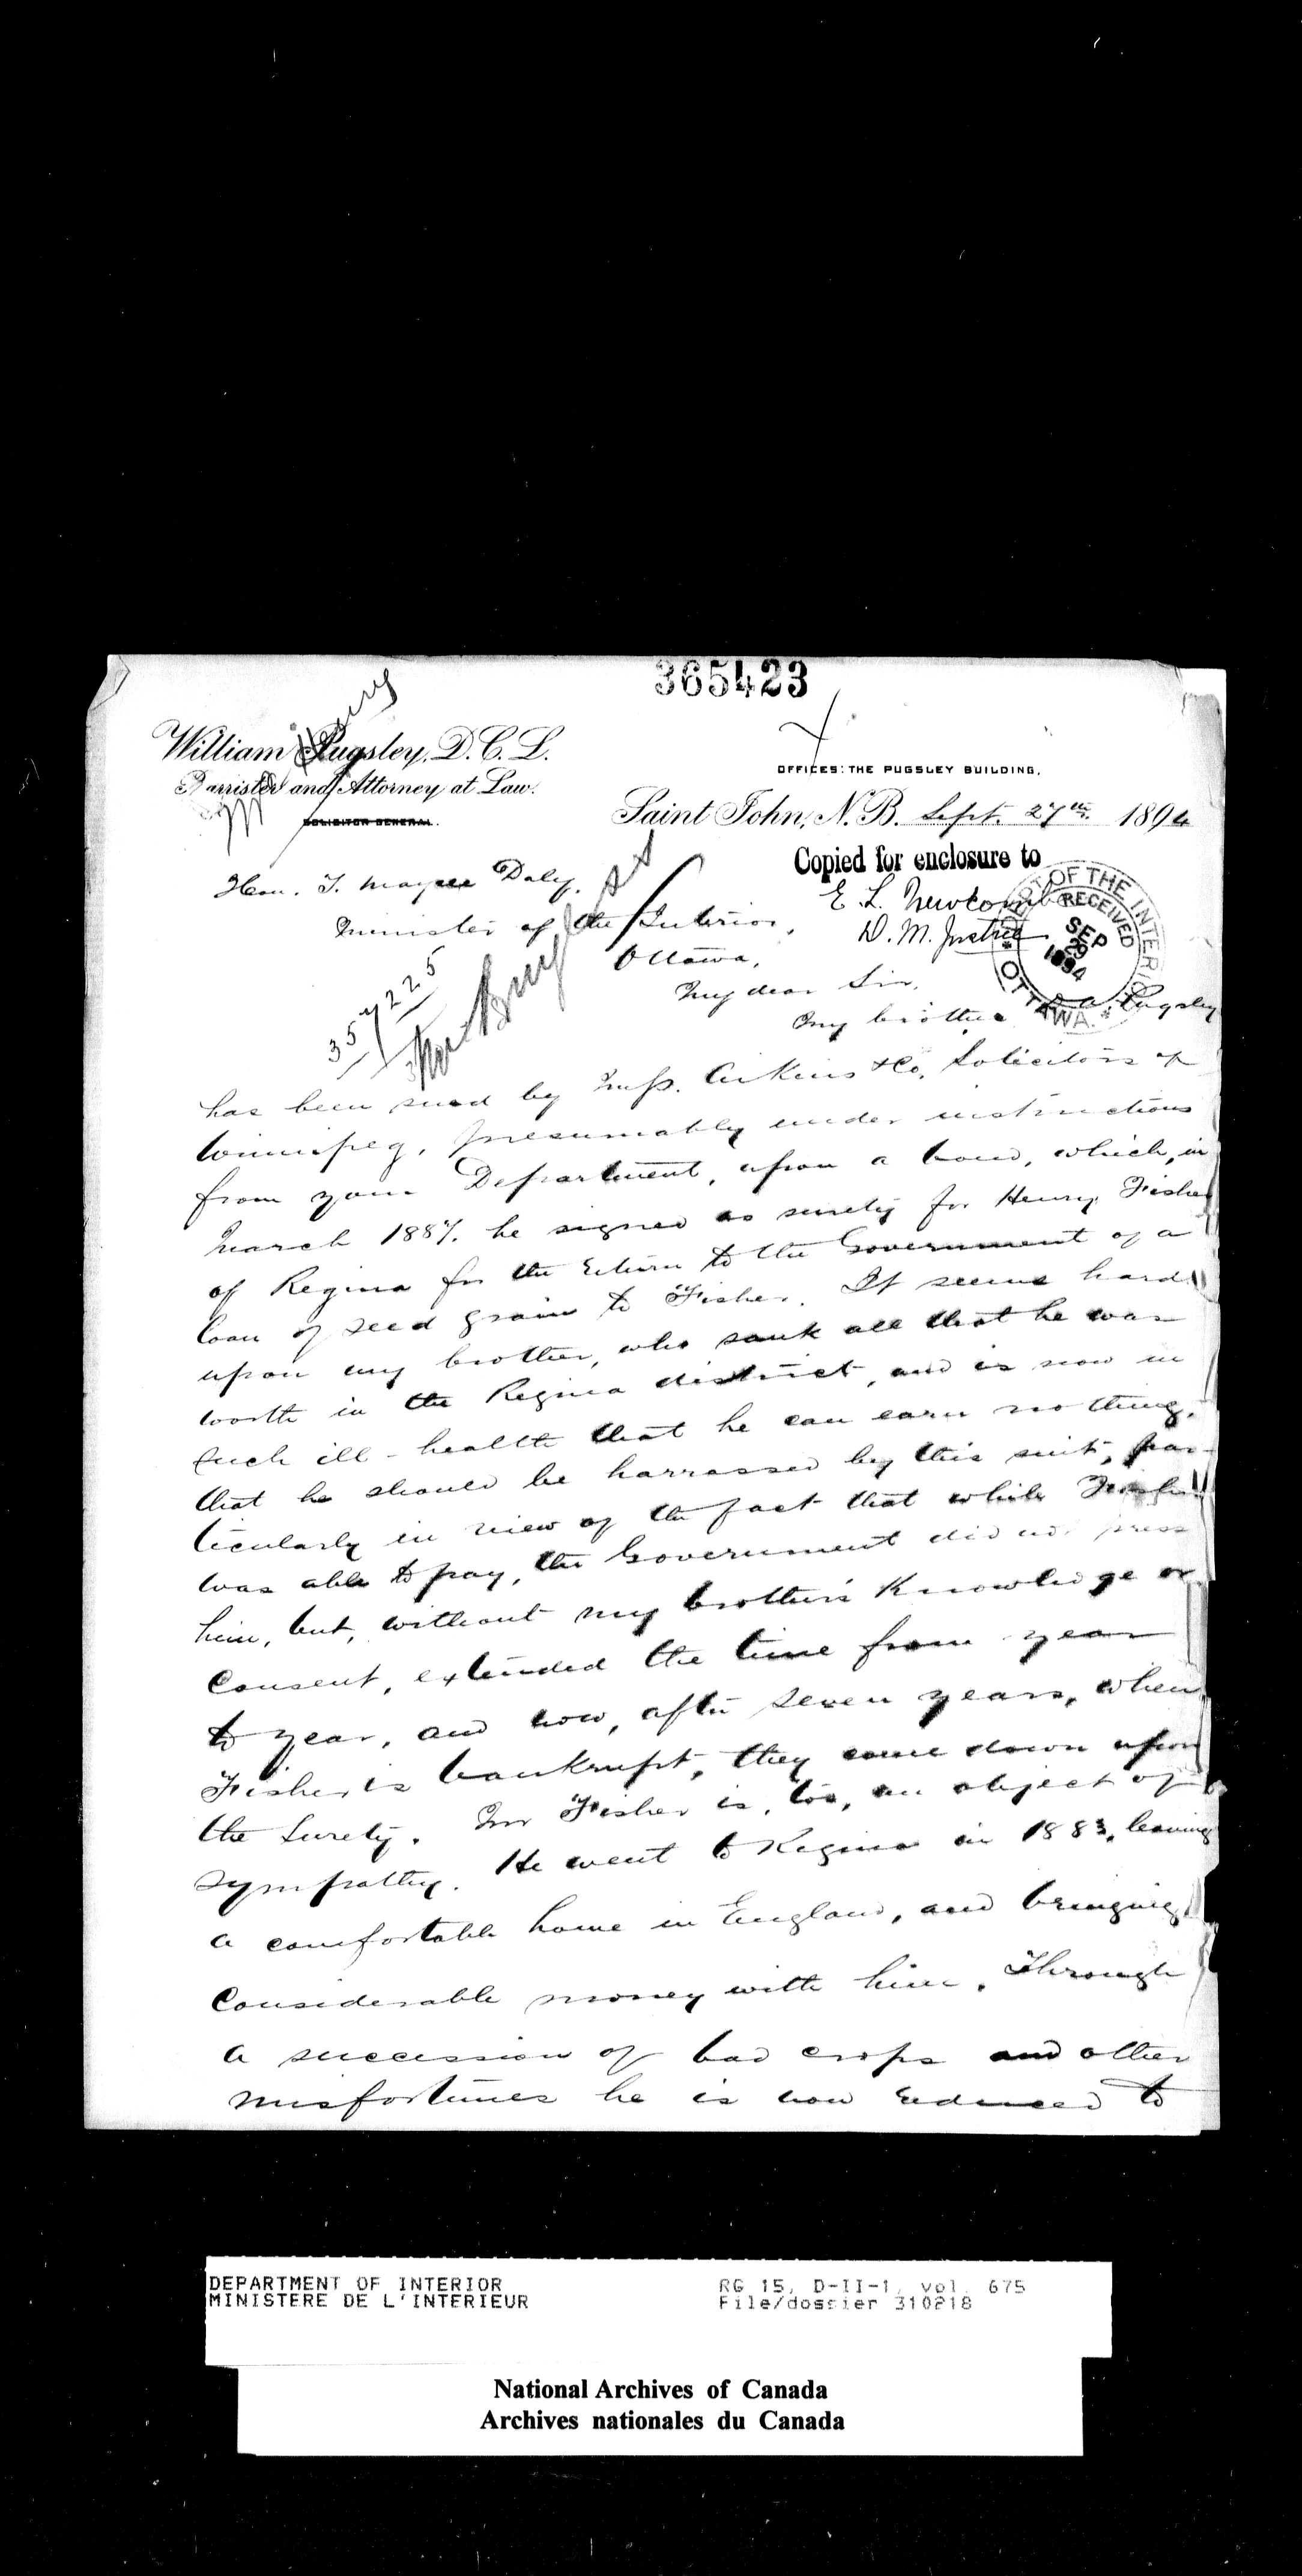 365423
William Pugsley, D.C.L.
Barrister and Attorney at Law.
SOLICITOR GENERAL.
OFFICES: THE PUGSLEY BUILDING.
Saint John, N.B. Sept. 27th 1894
Copied for enclosure to
E. L. Newcombe
D. M. Justice
DEPT OF THE INTERIOR
RECEIVED
SEP
29
1894
OTTAWA.
Hon. T. Mayne Daly,
Minister of the Interior,
Ottawa,
357225
My dear Sir,
My brother Pugsley
has been sued by Mess. Aikins & Co, Solicitors of
Winnipeg, presumably under instructions
from your Department, upon a bond, which, in
March 1887, he signed as surety for Henry Fisher
of Regina for the return to the Government of a
loan of seed grain to Fisher. It seems hard
upon my brother, who sank all that he was
worth in the Regina district, and is now in
such ill-health that he can earn nothing,
that he should be harrassed by this suit, par-
ticularly in view of the fact that while Fisher
was able to pay, the Government did not press
him, but, without my brother's knowledge or
consent, extended the time from year
to year, and now, after seven years, when
Fisher is bankrupt, they come down upon
the surety. Mr Fisher is, too, an object of
sympathy. He went to Regina in 1883, leaving
a comfortable home in England, and bringing
considerable money with him. Through
a succession of bad crops and other
misfortunes he is now reduced to
DEPARTMENT OF INTERIOR
MINISTERE DE L'INTERIEUR
RG 15, D-II-1, vol. 675
File/dossier 310218
National Archives of Canada
Archives nationales du Canada